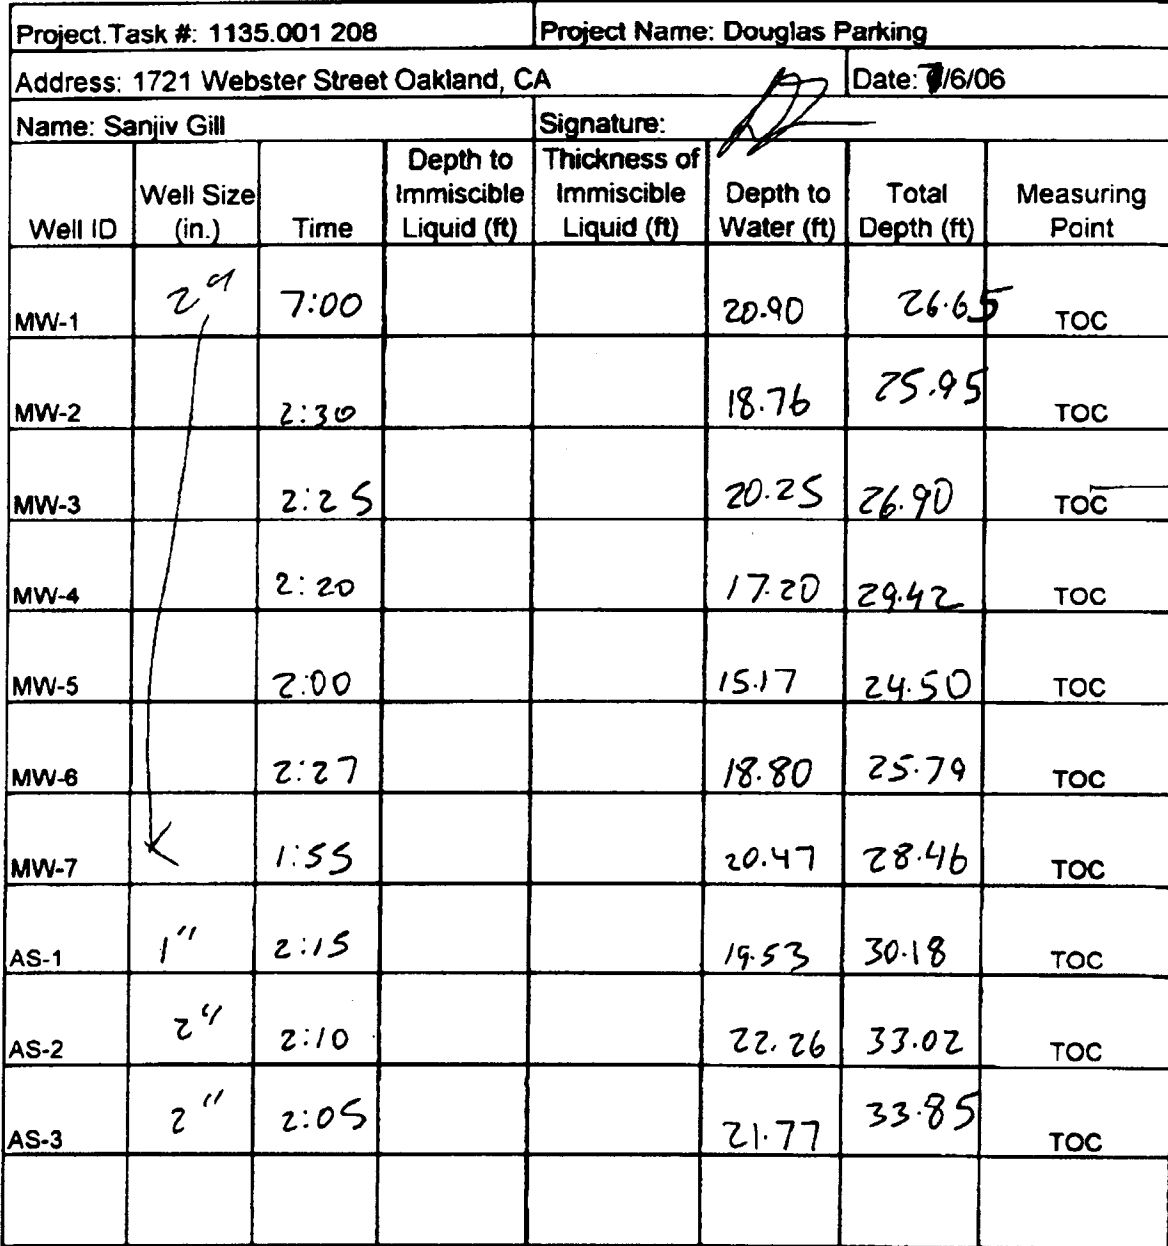 Project.Task #: 1135.001 208 Project Name: Douglas Parking
Address: 1721 Webster Street Oakland, CA Date: 7/6/06
Name: Sanjiv Gill Signature:
Well ID Well Size (in.) Time Depth to Immiscible Liquid (ft) Thickness of Immiscible Liquid (ft) Depth to Water (ft) Total Depth (ft) Measuring Point
MW-1 2" 7:00 20.90 26.65 TOC
MW-2 2:30 18.76 25.95 TOC
MW-3 2:25 20.25 26.90 TOC
MW-4 2:20 17.20 29.42 TOC
MW-5 2:00 15.17 24.50 TOC
MW-6 2:27 18.80 25.79 TOC
MW-7 1:55 20.47 28.46 TOC
AS-1 1" 2:15 19.53 30.18 TOC
AS-2 2" 2:10 22.26 33.02 TOC
AS-3 2" 2:05 21.77 33.85 TOC